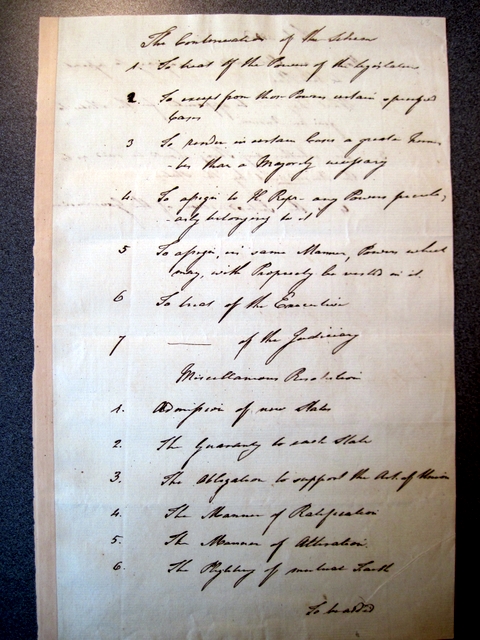 The Continuation of the Scheme
1. To treat of the Powers of the legislature
2 To except from those Powers certain specified
Cases
3 To render in certain Cases a greater Num-
-ber than a Majority necessary
4. To assign to H. Repr. any Powers peculi-
-arly belonging to it
5 To assign, in same Manner, Powers which
may, with Propriety be vested in it
6 To treat of the Executive
7 —— of the Judiciary
Miscellaneous Resolution
1. Admission of new States
2. The Guaranty to each State
3. The Obligation to support the Art. of Union
4. The Manner of Ratification
5. The Manner of Alteration
6. The Plighting of mutual Faith
To be added